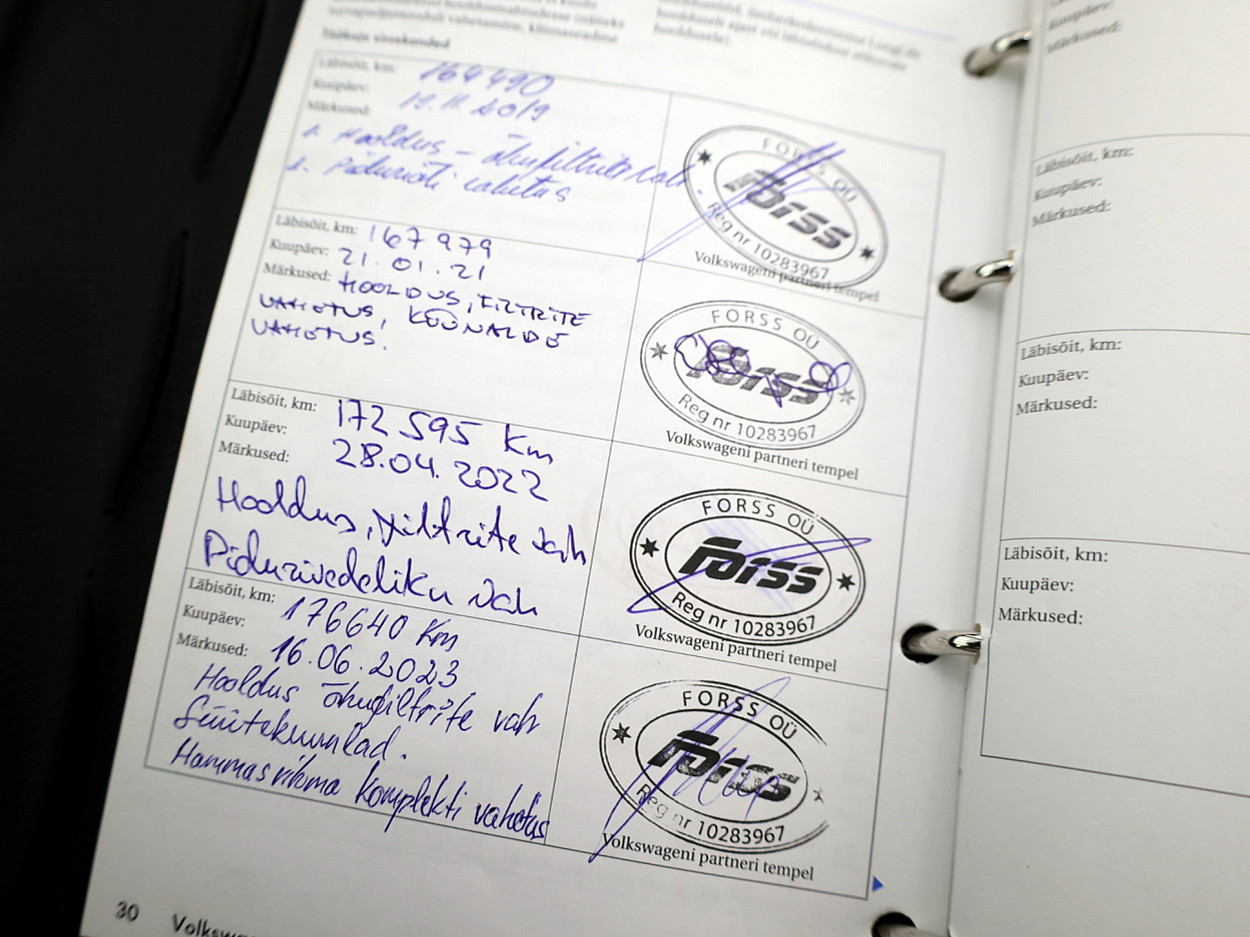 Töökoja sissekanded
Läbisõit, km: 164490
Kuupäev: 19.11.2019
Märkused:
1. Hooldus – õhufiltrite vah.
2. Piduriõli vahetus
FORSS OÜ
Forss
Reg nr 10283967
Volkswageni partneri tempel
Läbisõit, km: 167 979
Kuupäev: 21.01.21
Märkused: HOOLDUS, FILTRITE
VAHETUS, KÜÜNALDE
VAHETUS.
FORSS OÜ
Forss
Reg nr 10283967
Volkswageni partneri tempel
Läbisõit, km: 172 595 Km
Kuupäev: 28.04.2022
Märkused:
Hooldus, Filtrite vah
Pidurivedeliku vah
FORSS OÜ
Forss
Reg nr 10283967
Volkswageni partneri tempel
Läbisõit, km: 176640 Km
Kuupäev: 16.06.2023
Märkused:
Hooldus õhufiltrite vah
Süüteküünlad.
Hammasrihma komplekti vahetus
FORSS OÜ
Forss
Reg nr 10283967
Volkswageni partneri tempel
30
Kuupäev:
Märkused:
Läbisõit, km:
Kuupäev:
Märkused:
Läbisõit, km:
Kuupäev:
Märkused:
Läbisõit, km:
Kuupäev:
Märkused: